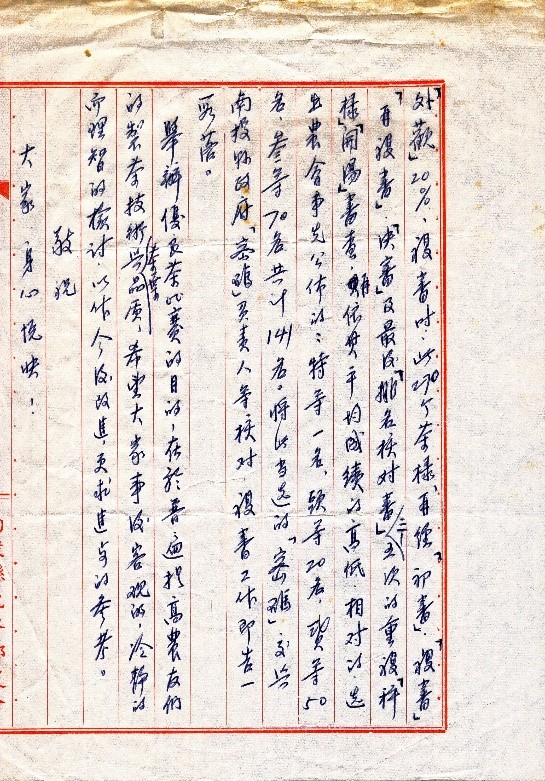 外觀」20%、複審時、此270个茶樣、再經「初審」、「複審」
「再複審」、「決審」及最後「排名核對審」二十五次的重複「評
樣」「開湯」審查、雖依其平均成績的高低、相對的、选
出農會事先公佈的：特等一名、頭等20名、貳等50
名、叁等70名共计141名。將此当选的「密碼」交與
南投縣政府「密碼」負責人等核对、複審工作即告一
段落。
舉辦優良茶比賽的目的、在於普遍提高農友们
的製茶技術與茶葉品质、希望大家事後客观的、冷静的
而理智的檢讨、以作今後改進、更求進步的参考。
敬祝
大家身心愉快！